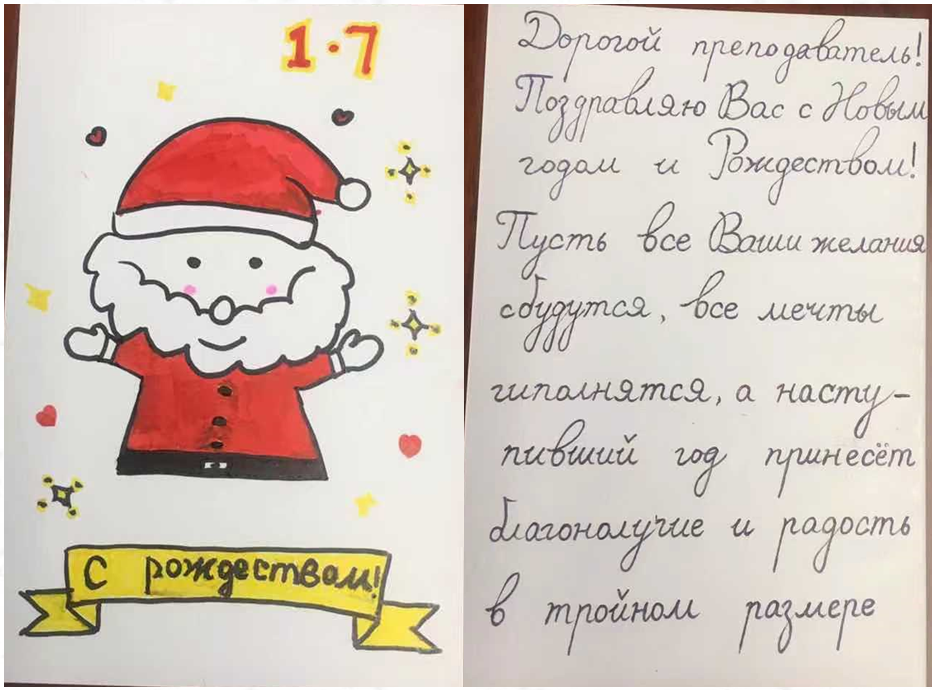 1·7
С рождеством!
Дорогой преподаватель!
Поздравляю Вас с Новым
годом и Рождеством!
Пусть все Ваши желания
сбудутся, все мечты
гиполнятся, а насту-
пивший год принесёт
благополучие и радость
в тройном размере